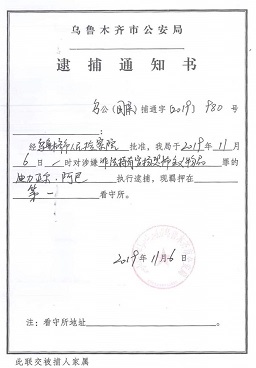 乌鲁木齐市公安局
逮捕通知书
乌公(国保)捕通字〔2019〕980号
:
经 人民检察院 批准,我局于2019年11月
6日 / 时对涉嫌 罪的
迪力亚尔·阿巴 执行逮捕,现羁押在
第一 看守所。
2019年11月6日
注:看守所地址
此联交被捕人家属